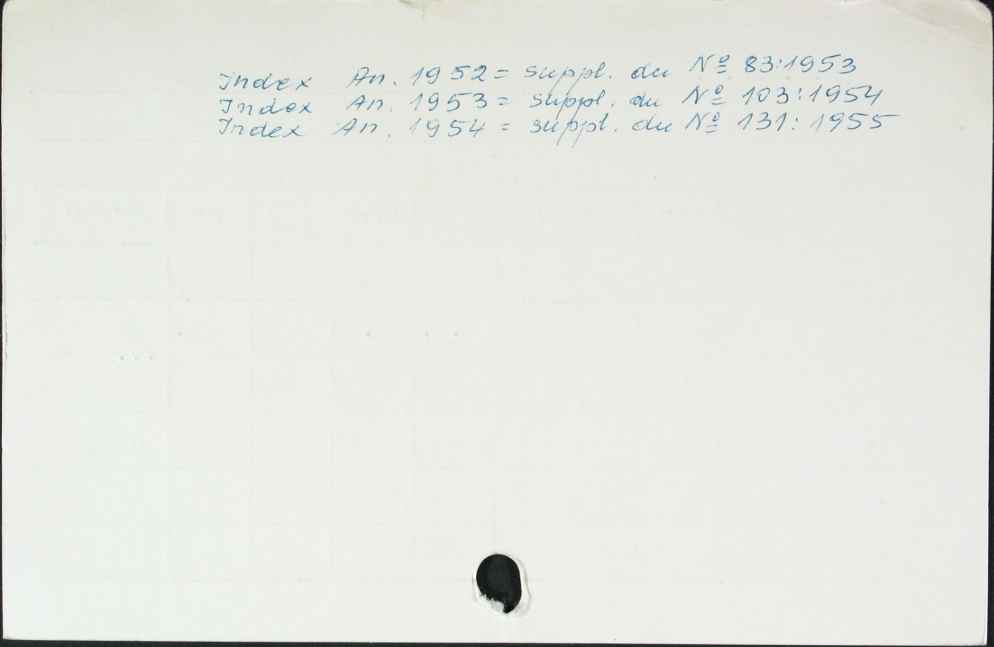 Index An. 1952 = suppl. du Nº 83:1953
Index An. 1953 = suppl. du Nº 103:1954
Index An. 1954 = suppl. du Nº 131:1955